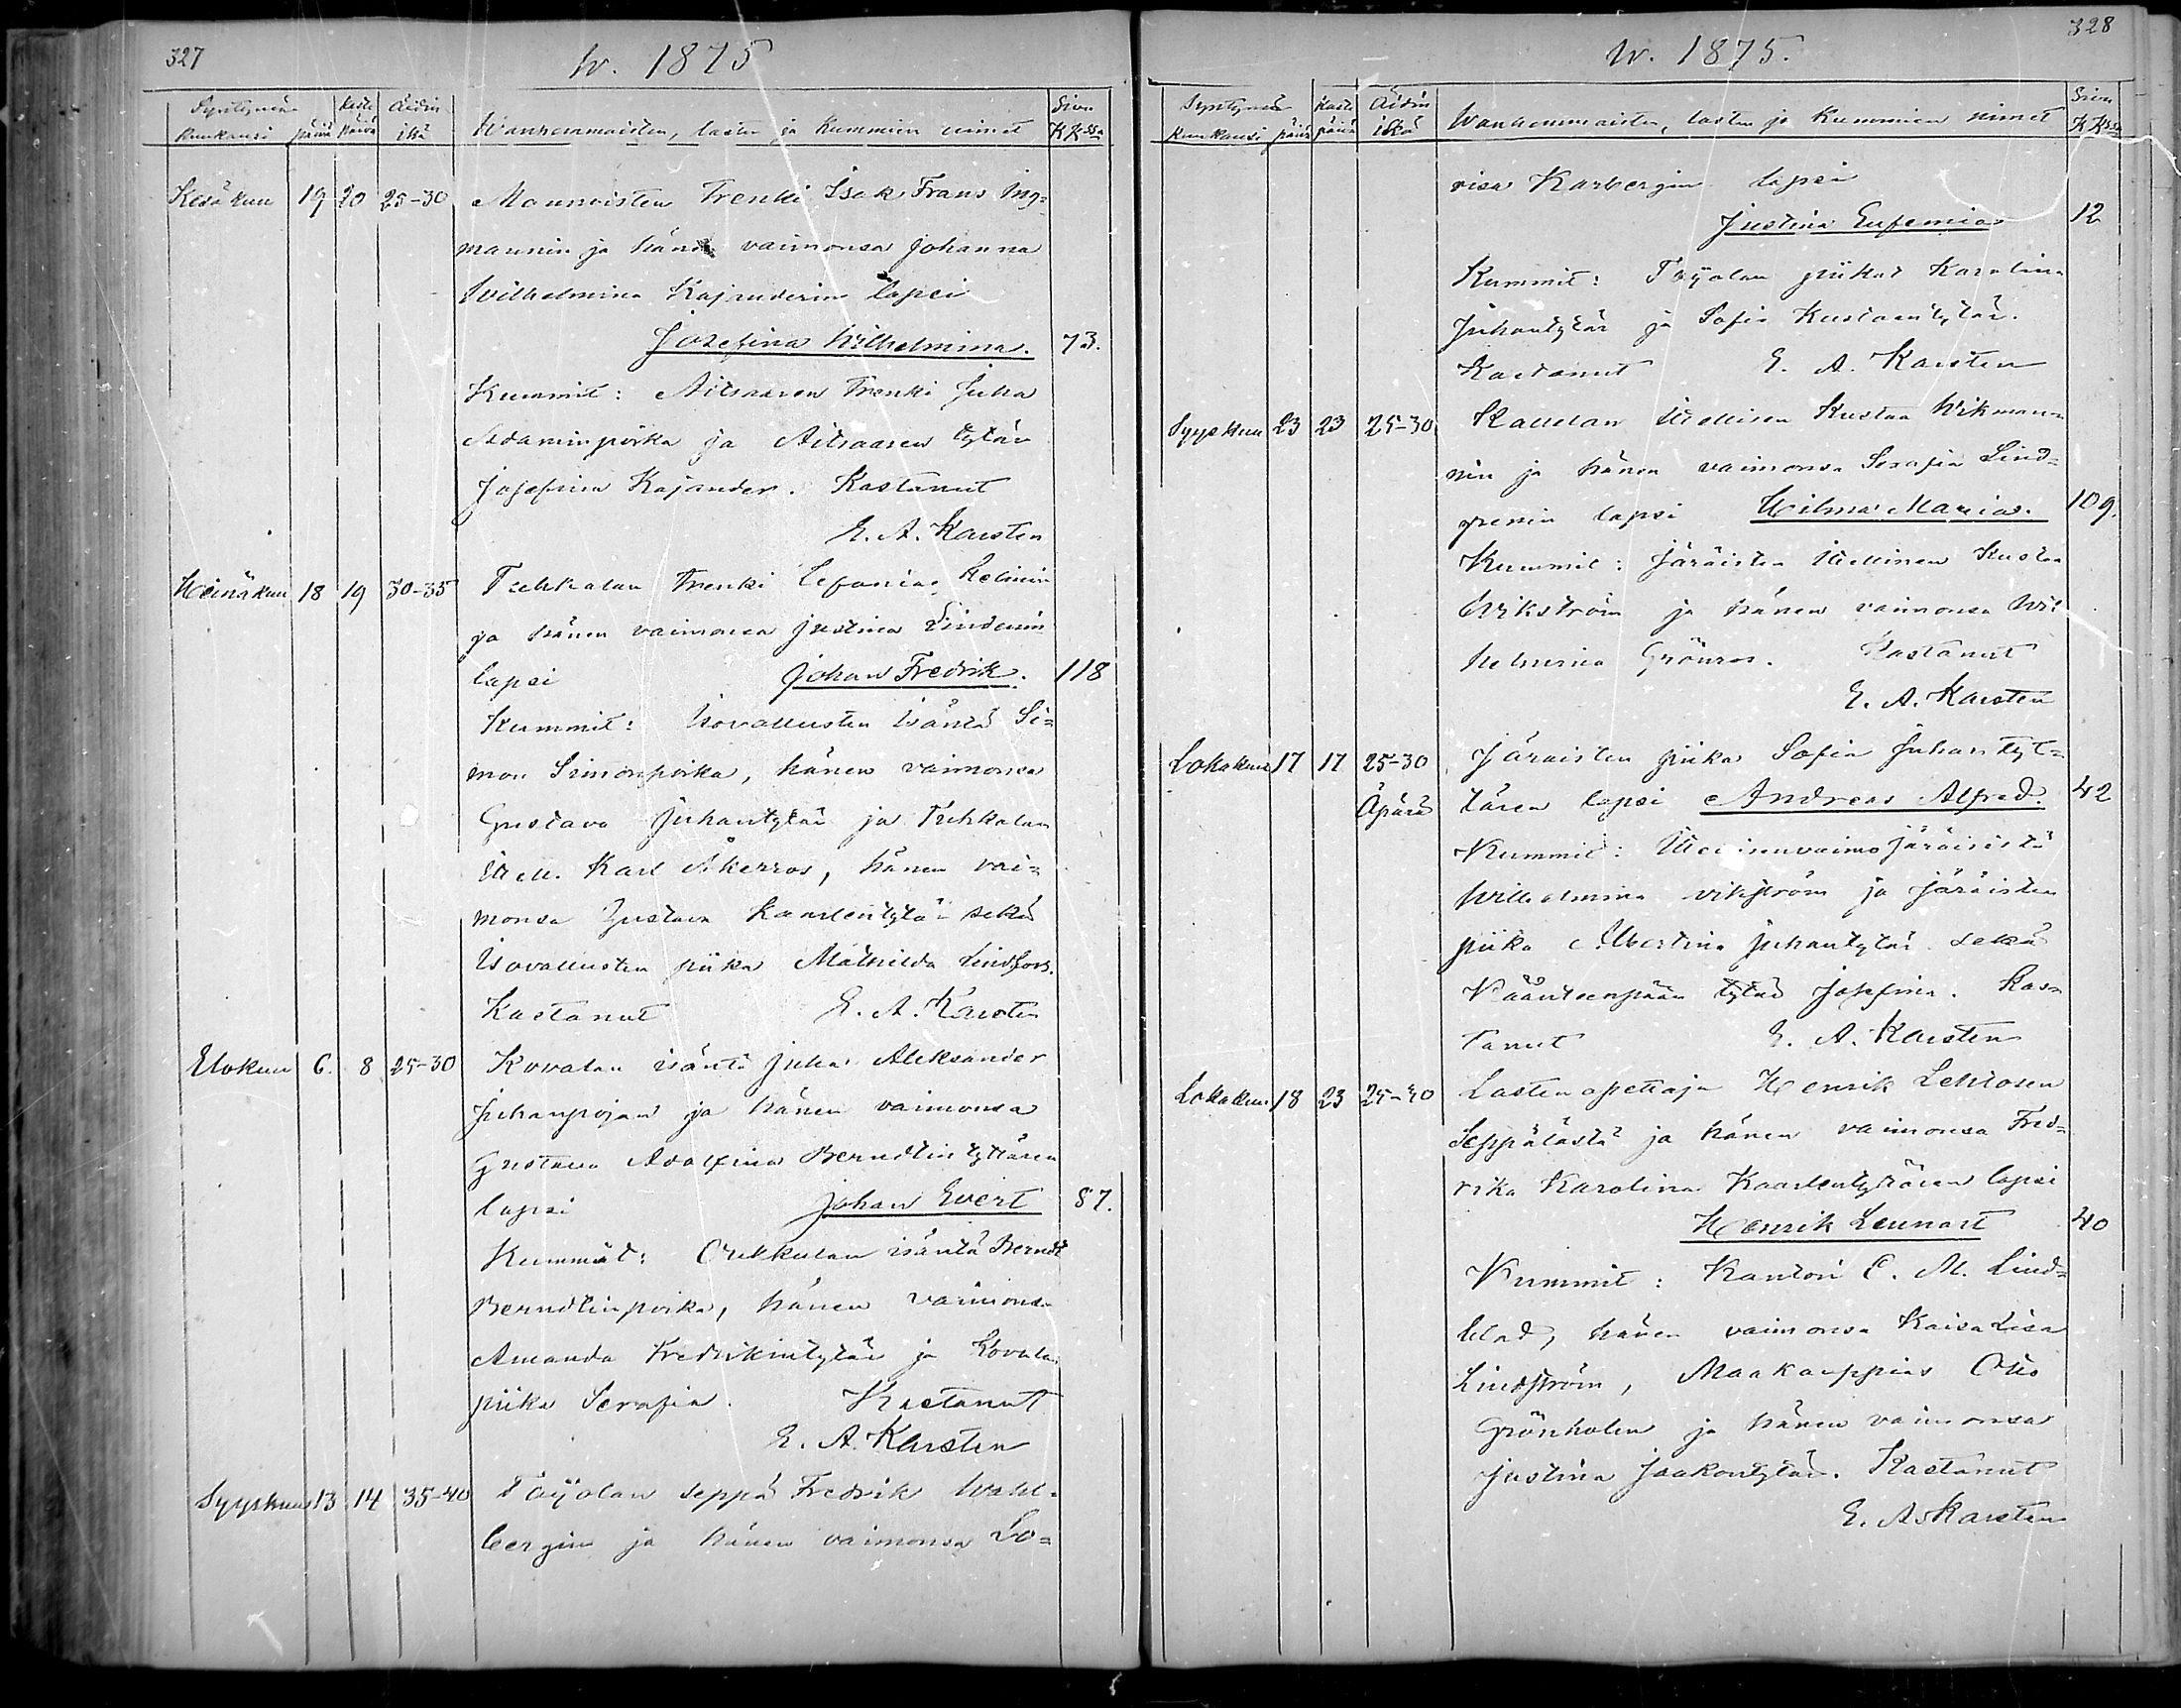 327
w. 1875
Syntymä kuukausi päivä Kaste päivä Äidin ikä Wanhemmaisten, lasten ja Kummien nimet Sivu K Kssa
Kesäkuu 19 20 25-30 Mounoisten Trenki Isak Frans Mg=
mannin ja hänen vaimonsa Johanna
Wilhelmina Kajanderin lapsi
Josefina Wilhelmina. 73.
Kummit: Aitsaaren Trenki Juha
Adaminpoika ja Aitsaaren tytär
Josefina Kajander. Kastanut
E. A. Karsten
Heinäkuu 18 19 30-35 Tuhkalan trenki Sefanias Helinin
ja hänen vaimonsa Justina Lindenin
lapsi Johan Fredrik. 118
Kummit: Isovallusten isäntä Si=
mon Simonpoika, hänen vaimonsa
Gustava Juhantytär ja Tuhkalan
itsell. Karl Åkerros, hänen vai=
monsa Gustava Kaarlentytär sekä
Isovallusten piika Mathilda Lindfors.
Kastanut E. A. Karsten
Elokuu 6. 8 25-30 Kovalan isäntä Juha Aleksander
Juhanpojan ja hänen vaimonsa
Gustava Adolfina Berndtintyttären
lapsi Johan Evert 87.
Kummit: Orkkulan isäntä Berndt
Berndtinpoika, hänen vaimonsa
Amanda Fredrikintytär ja Kovalan
piika Serafia. Kastanut
E. A. Karsten
Syyskuu 13 14 35-40 Töyölan seppä Fredrik Wahl=
bergin ja hänen vaimonsa Lo=
328
w. 1875.
Syntymä kuukausi päivä Kaste päivä Äidin ikä Wanhemmaisten, lasten ja Kummien nimet Sivu K Kssa
visa Karbergin lapsi
Justina Eufemia 12
Kummit: Töyolan piikat Karolina
Juhantytär ja Sofia Kustaantytär.
Kastanut E. A. Karsten
Syyskuu 23 23 25-30 Kallelan itsellisen Kustaa Wikman=
nin ja hänen vaimonsa Serafia Lind=
grenin lapsi Hilma Maria. 109.
Kummit: Järäisten itsellinen Kustaa
Wikström ja hänen vaimonsa Wil
helmina Grönros. Kastanut
E. A. Karsten
Lokakuu 17 17 25-30 Järäisten piika Sofia Juhantyt=
Äpärä tären lapsi Andreas Alfred. 42
Kummit: Itsellisenvaimo Järäisistä
Wilhelmina Vikström ja Järäisten
piika Albertina Juhantytär sekä
Käänteenpään tytär Josefina. Kas=
tanut E. A. Karsten
Lokakuu 18 23 25-30 Lastenopettaja Henrik Lehtosen
Seppälästä ja hänen vaimonsa Fred=
rika Karolina Kaarlentyttären lapsi
Henrik Lennart 40
Kummit: Kantori C. M. Lind=
blad, hänen vaimonsa Kaisa Lisa
Lindström, Maakauppias Otto
Grönholm ja hänen vaimonsa
Justina Jaakontytär. Kastanut
E. A. Karsten